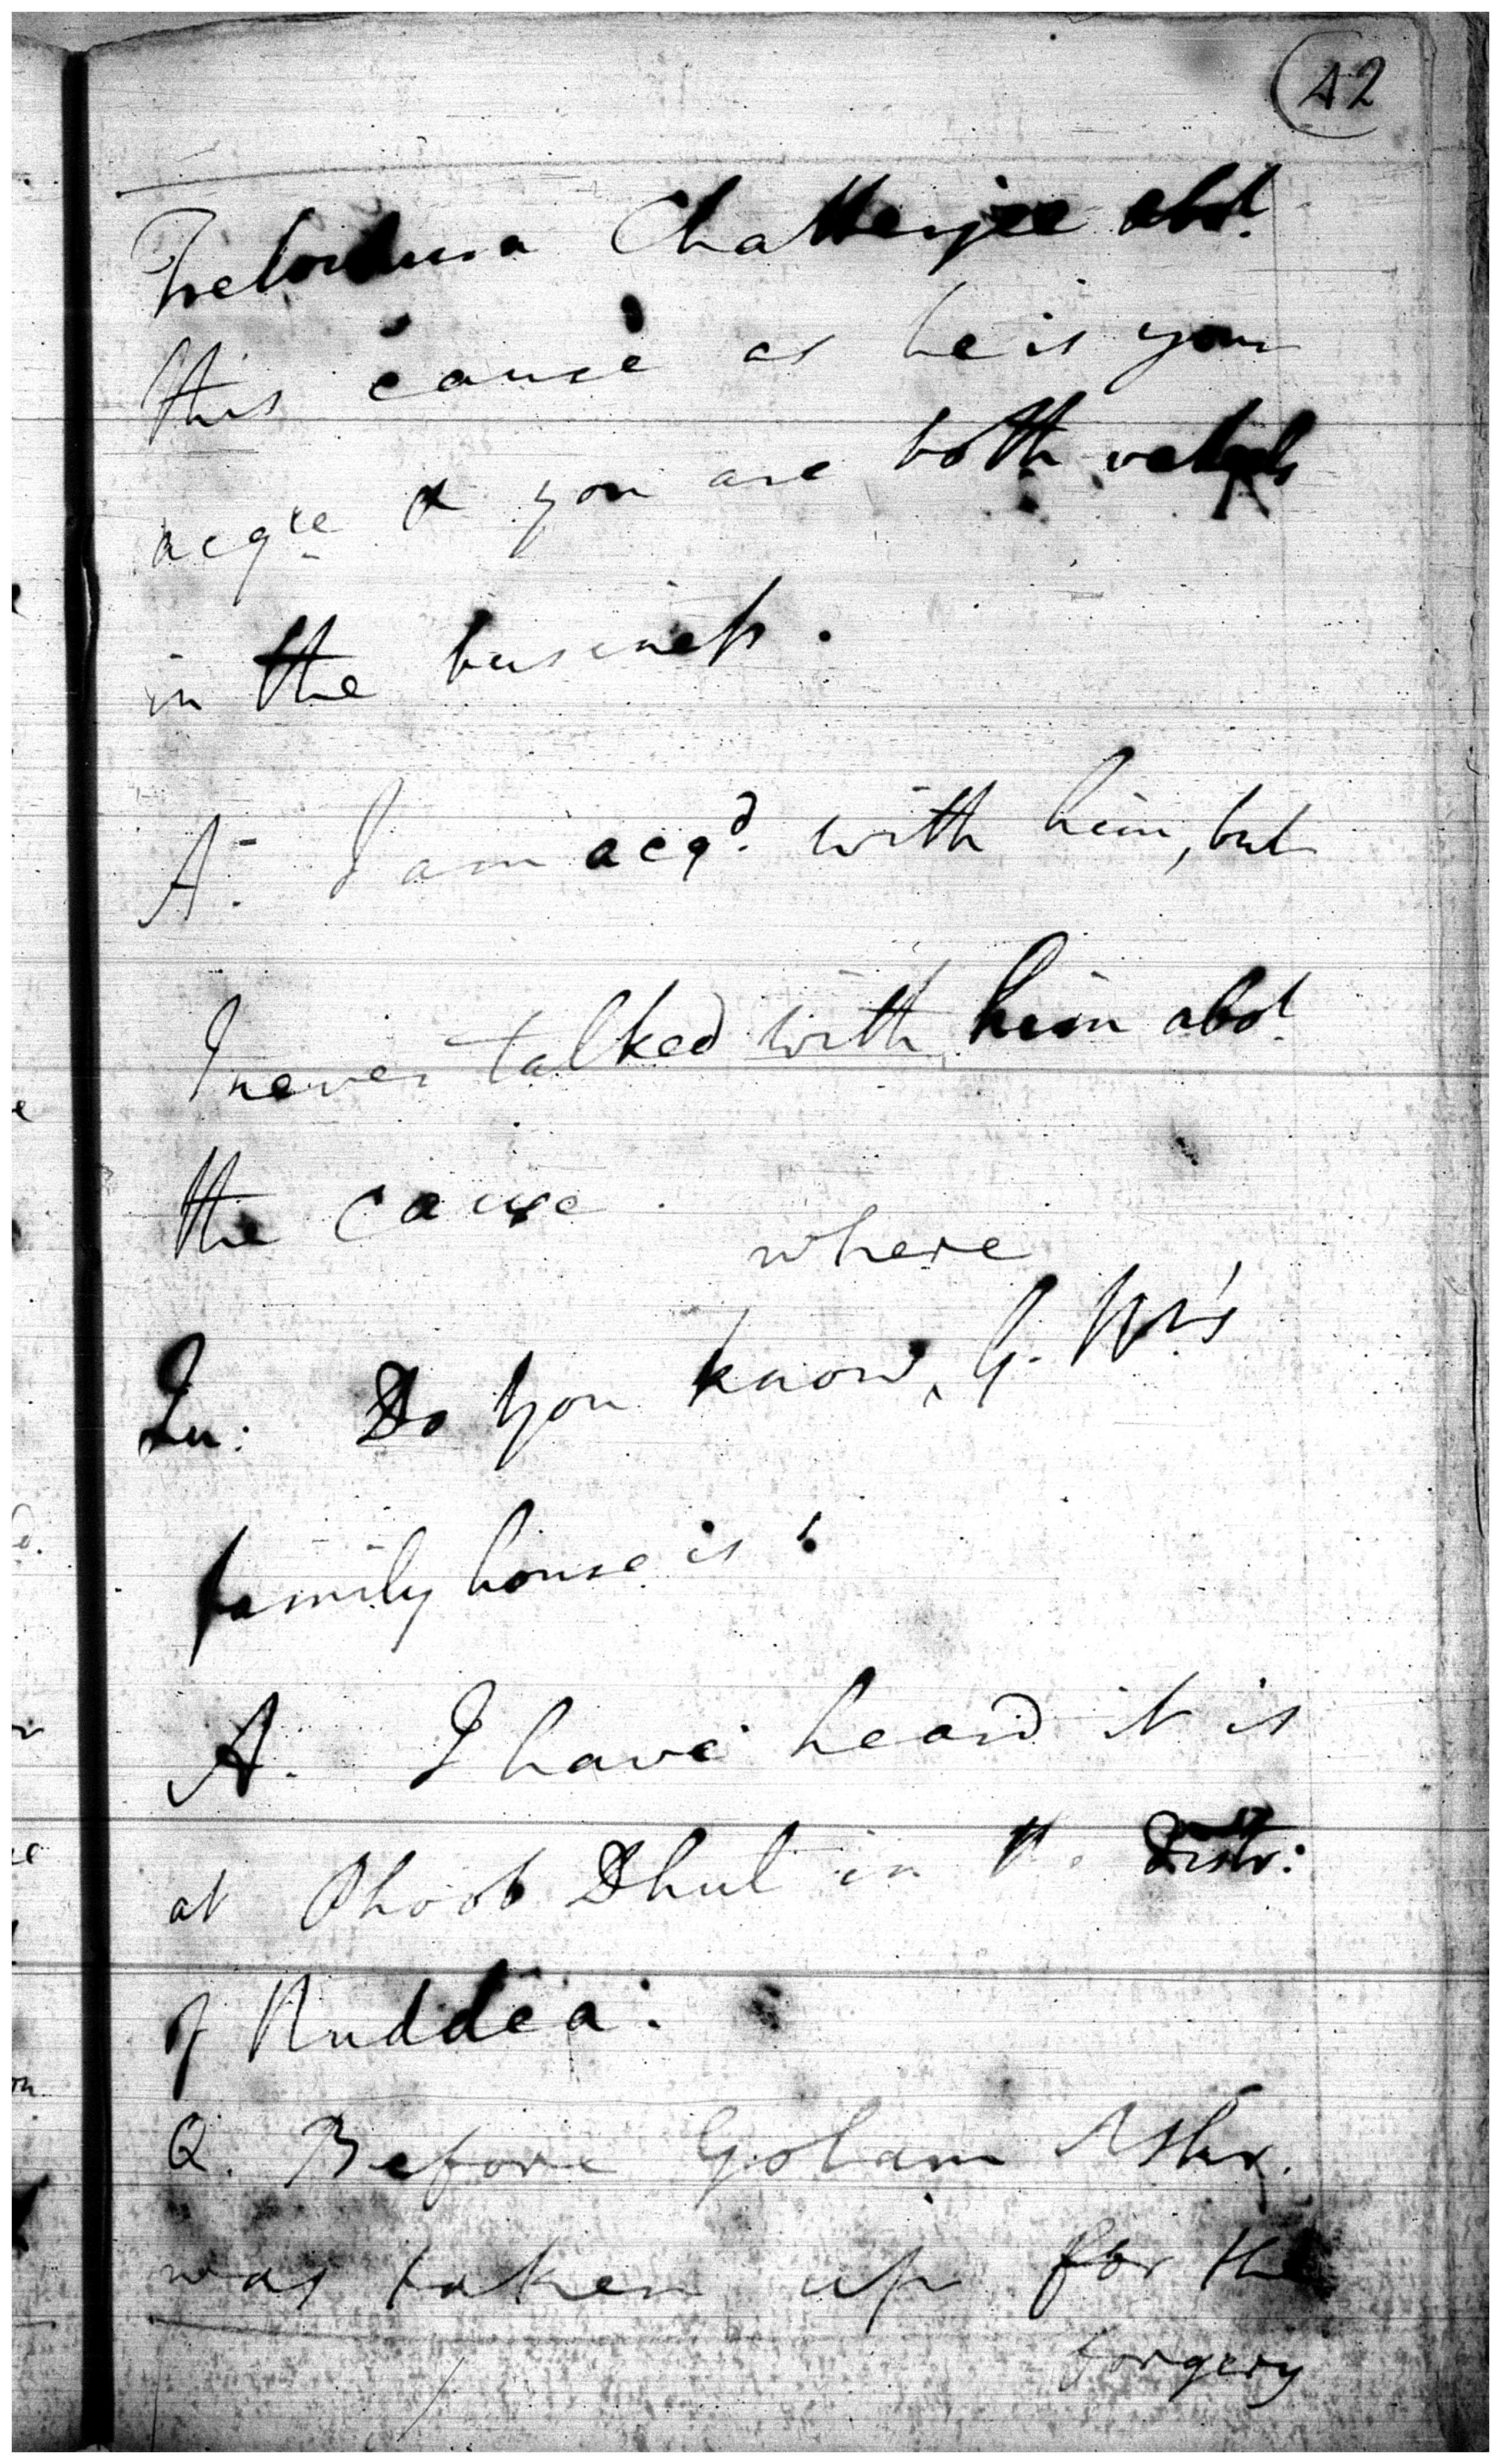 42
Chatterjee abt.
this cause as he is your
acqce & you are both
in the business.
A. I am acqd. with him, but
I never talked with him abt.
the cause.
where
Qu: Do you know, G.
family house is?
A. I have heard it is
at Dhul in the Distr:
of Nuddea.
Q. Before Golam
was taken up for the
forgery